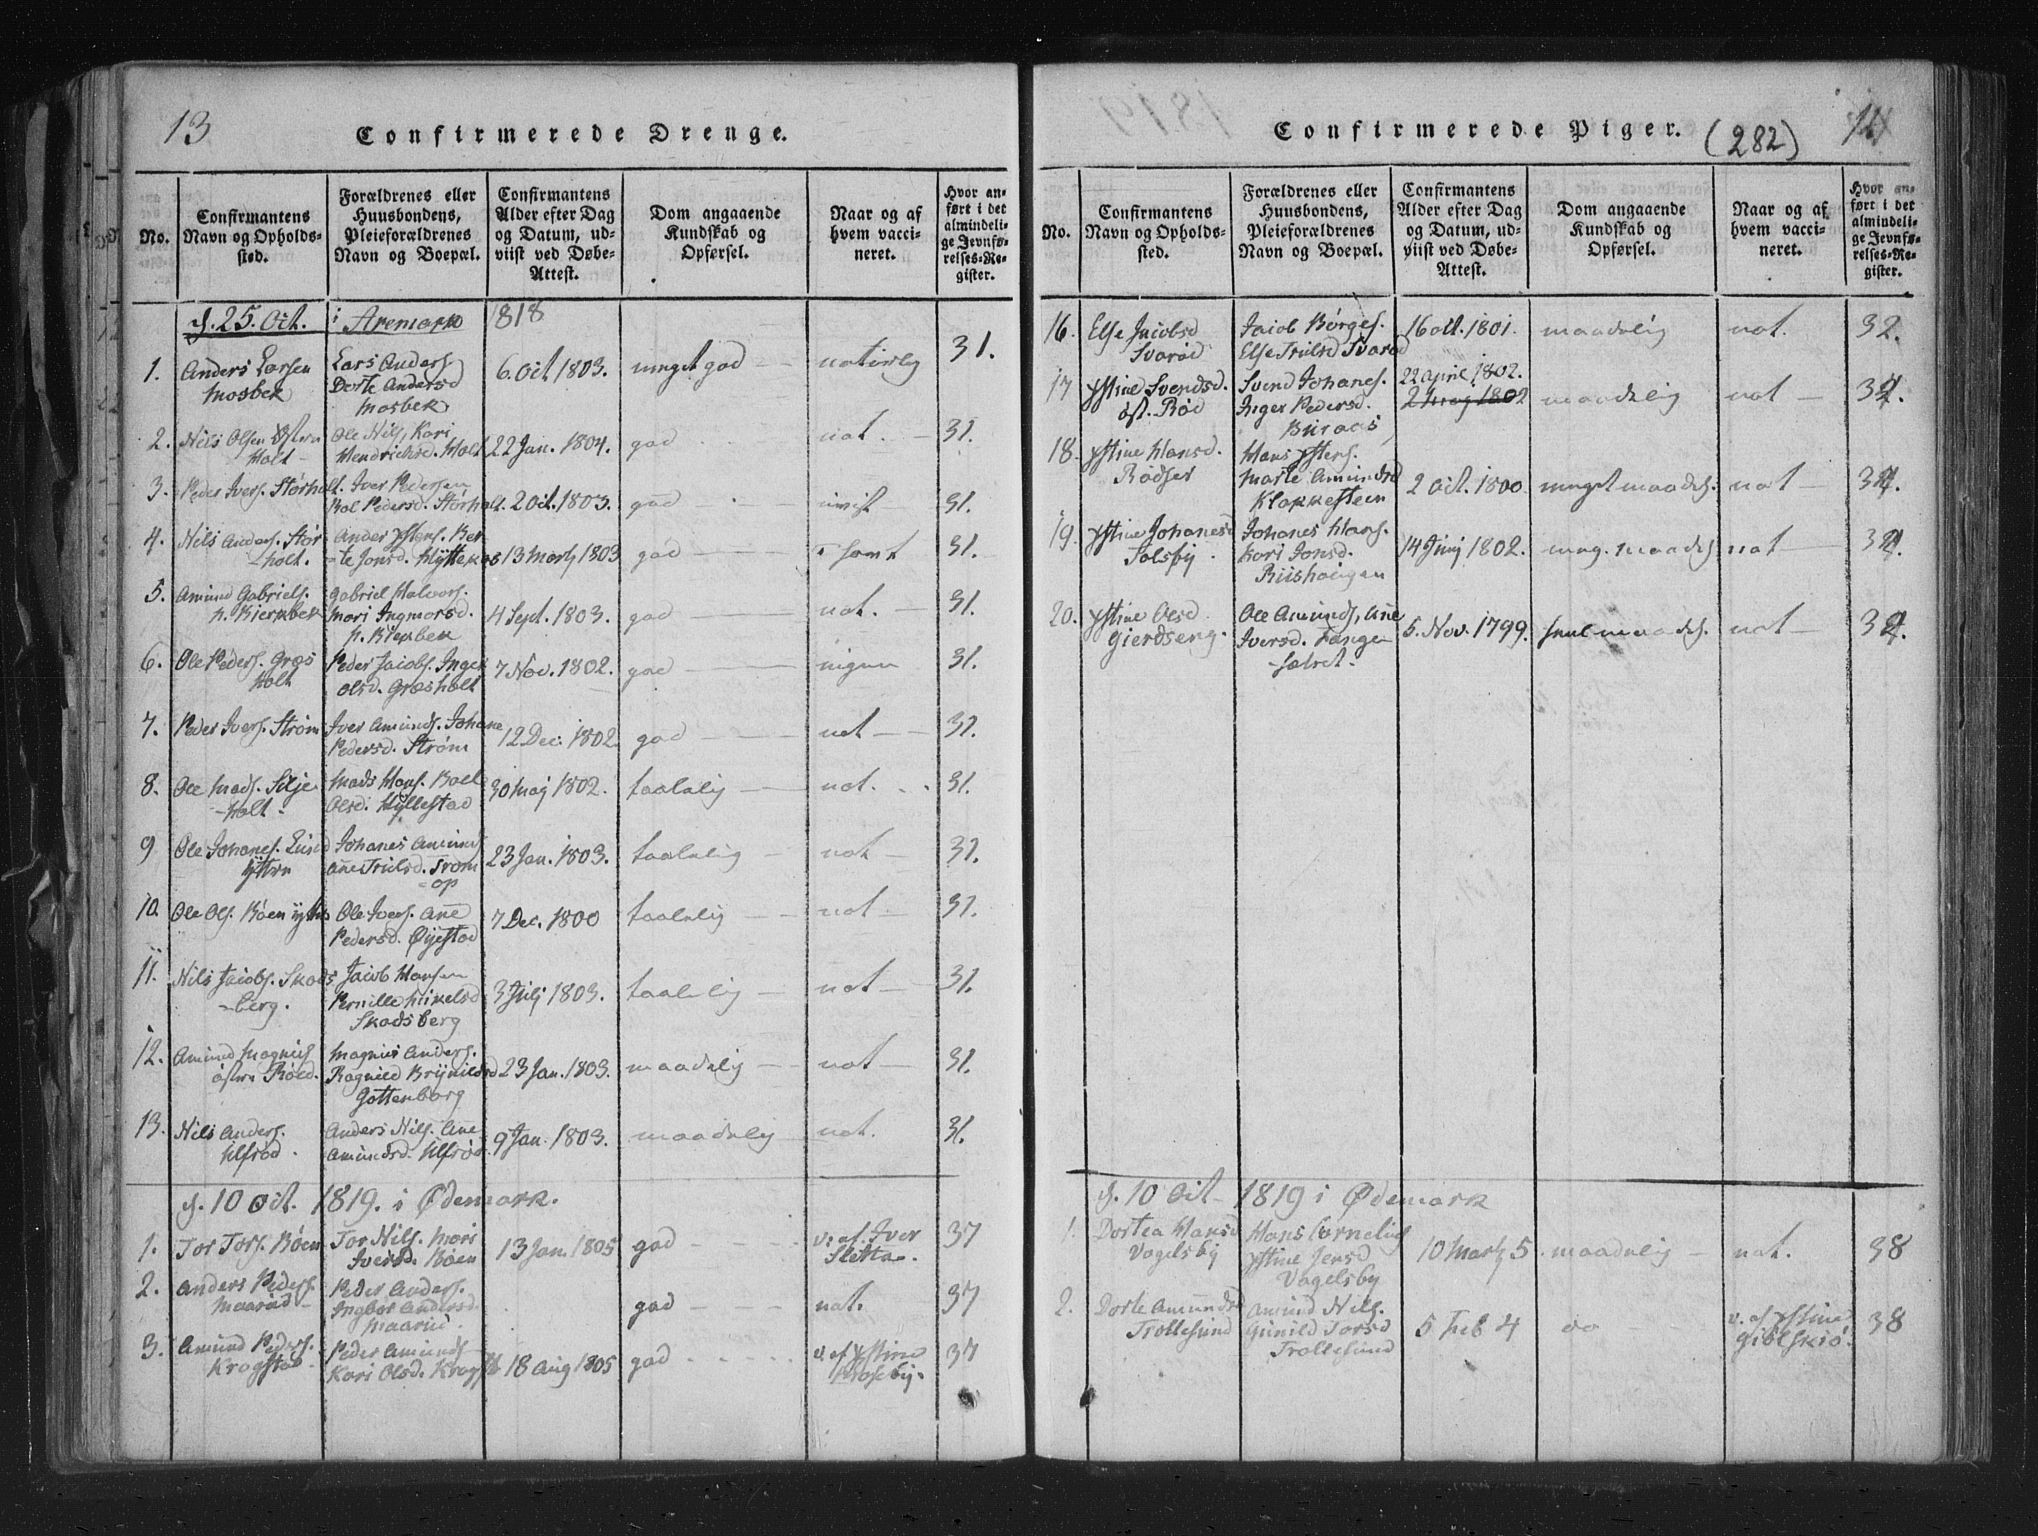 13
Confirmerede Drenge.
No.
Confirmantens
Navn og Opholds-
sted.
Forældrenes eller
Huusbondens,
Pleieforældrenes
Navn og Boepæl.
Confirmantens
Alder efter Dag
og Datum, ud-
viist ved Døbe-
Attest.
Dom angaaende
Kundskab og
Opførsel.
Naar og af
hvem vacci-
neret.
Hvor an-
ført i det
almindeli-
ge Jevnfø-
relses-Re-
gister.
d. 25. Oct. i Aremark 1818
1. Anders Larsen
Mosbek
Lars Anders.
Dorte Andersd
Mosbek
6. Oct 1803. meget god — naturlig 31.
2. Nils Olsen Østen
Holt
Ole Nils, Kari
Hendrichsd. Holt
22 Jan. 1804. god nat. 31.
3. Peder Ivers. Størholt.
Iver Pedersen
Kol Pedersd. Størholt.
2 Oct. 1803. god 31.
4. Nils Anders. Stør
-holt.
Ander Ysters. Ber
-te Jonsd. Hyttekas
13 Marty 1803 god 31.
5. Amund Gabriels.
n. Bierkbek
Gabriel Halvors.
Mari Ingmarsd.
n. Bierkbek
4 Sept. 1803. god nat. 31.
6. Ole Peders. Græs
Holt
Peder Jacobs. Inger
Olsd. Græsholt
7 Nov. 1802. god 31.
7. Peder Ivers. Strøm
Iver Amunds. Johane
Pedersd. Strøm
12 Dec. 1802. god nat 31.
8. Ole Mads. Silje
-holt.
Mads Hans. Boel
Olsd. Hyllestad
30 May 1802. taalelig nat. 31.
9 Ole Johanes. Lund
ytter
Johanes Amunds
Ane Trulsd. Trom
-op
23 Jan. 1803. taalelig nat 31.
10. Ole Ols. Bøen ytter
Ole Ivers. Ane
Pedersd. Øyestad
7 Dec. 1800 taalelig nat 31.
11. Nils Jacobs. Skads
-berg.
Jacob Hansen
Pernille Mikelsd
Skadsberg
3 Julj 1803. taalelig nat 31.
12. Amund Magnus
østen Røed.
Magnus Anders.
Ragnild Brynildsd
Gottenborg
23 Jan. 1803. maadelig nat 31.
13. Nils Anders.
Ulfsrød.
Anders Nils. Ane
Amundsd. Ulfsrød
9 Jan. 1803. maadelig nat. 31.
d. 10 Oct. 1819. i Ødemark.
1. Tor Tors. Bøen
Tor Nils. Mari
Iversd. Bøen
13 Jan. 1805 god v. af. Iver
Sletta. 37
2. Anders Peders.
Maarud
Peder Anders.
Ingbor Andersd.
Maarud.
god nat. 37
3. Amund Peders.
Kragstad
Peder Amunds
Kari Olsd. Kragst
18 Aug 1805 god v. af Ystine
Kroseby. 37
Confirmerede Piger. (282) 14
No.
Confirmantens
Navn og Opholds-
sted.
Forældrenes eller
Huusbondens,
Pleieforældrenes
Navn og Boepæl.
Confirmantens
Alder efter Dag
og Datum, ud-
viist ved Døbe-
Attest.
Dom angaaende
Kundskab og
Opførsel.
Naar og af
hvem vacci-
neret.
Hvor an-
ført i det
almindeli-
ge Jevnfø-
relses-Re-
gister.
16. Else Jacobsd
Svarød
Jacob Børges.
Else Trulsd Svarød
16 Oct. 1801. maadelig nat. 32.
17 Ystine Svendsd.
øst. Rød
Svend Johanes.
Inger Pedersd.
Buraas
22 April 1802.
2 May 1802 maadelig nat 32.
18. Ystine Hansd.
Rødser
Hans Ysters.
Marte Amundsd
Klokkesteen
2 Oct. 1800. meget maadel. nat 32.
19. Ystine Johanesd
Solsby.
Johanes Hans.
Kari Jonsd.
Riishaugen
14 Junj 1802. meg. maadel nat 32.
20. Ystine Olsd
Gierdseng.
Ole Amunds, Ane
Iversd. Tangen
-sætret.
5. Nov. 1799. maadel. nat 32.
d. 10 Oct 1819 i Ødemark
1. Dortea Hansd
Vagelsby
Hans Cornelius
Ystine Jensd
Vagelsby
10 Marty 5. maadelig nat. 38
2. Dorte Amundsd
Trollesund
Amund Nils.
Gunild Torsd
Trollesund
5 Feb 4 do v. af Ystine
Gibelskiø. 38